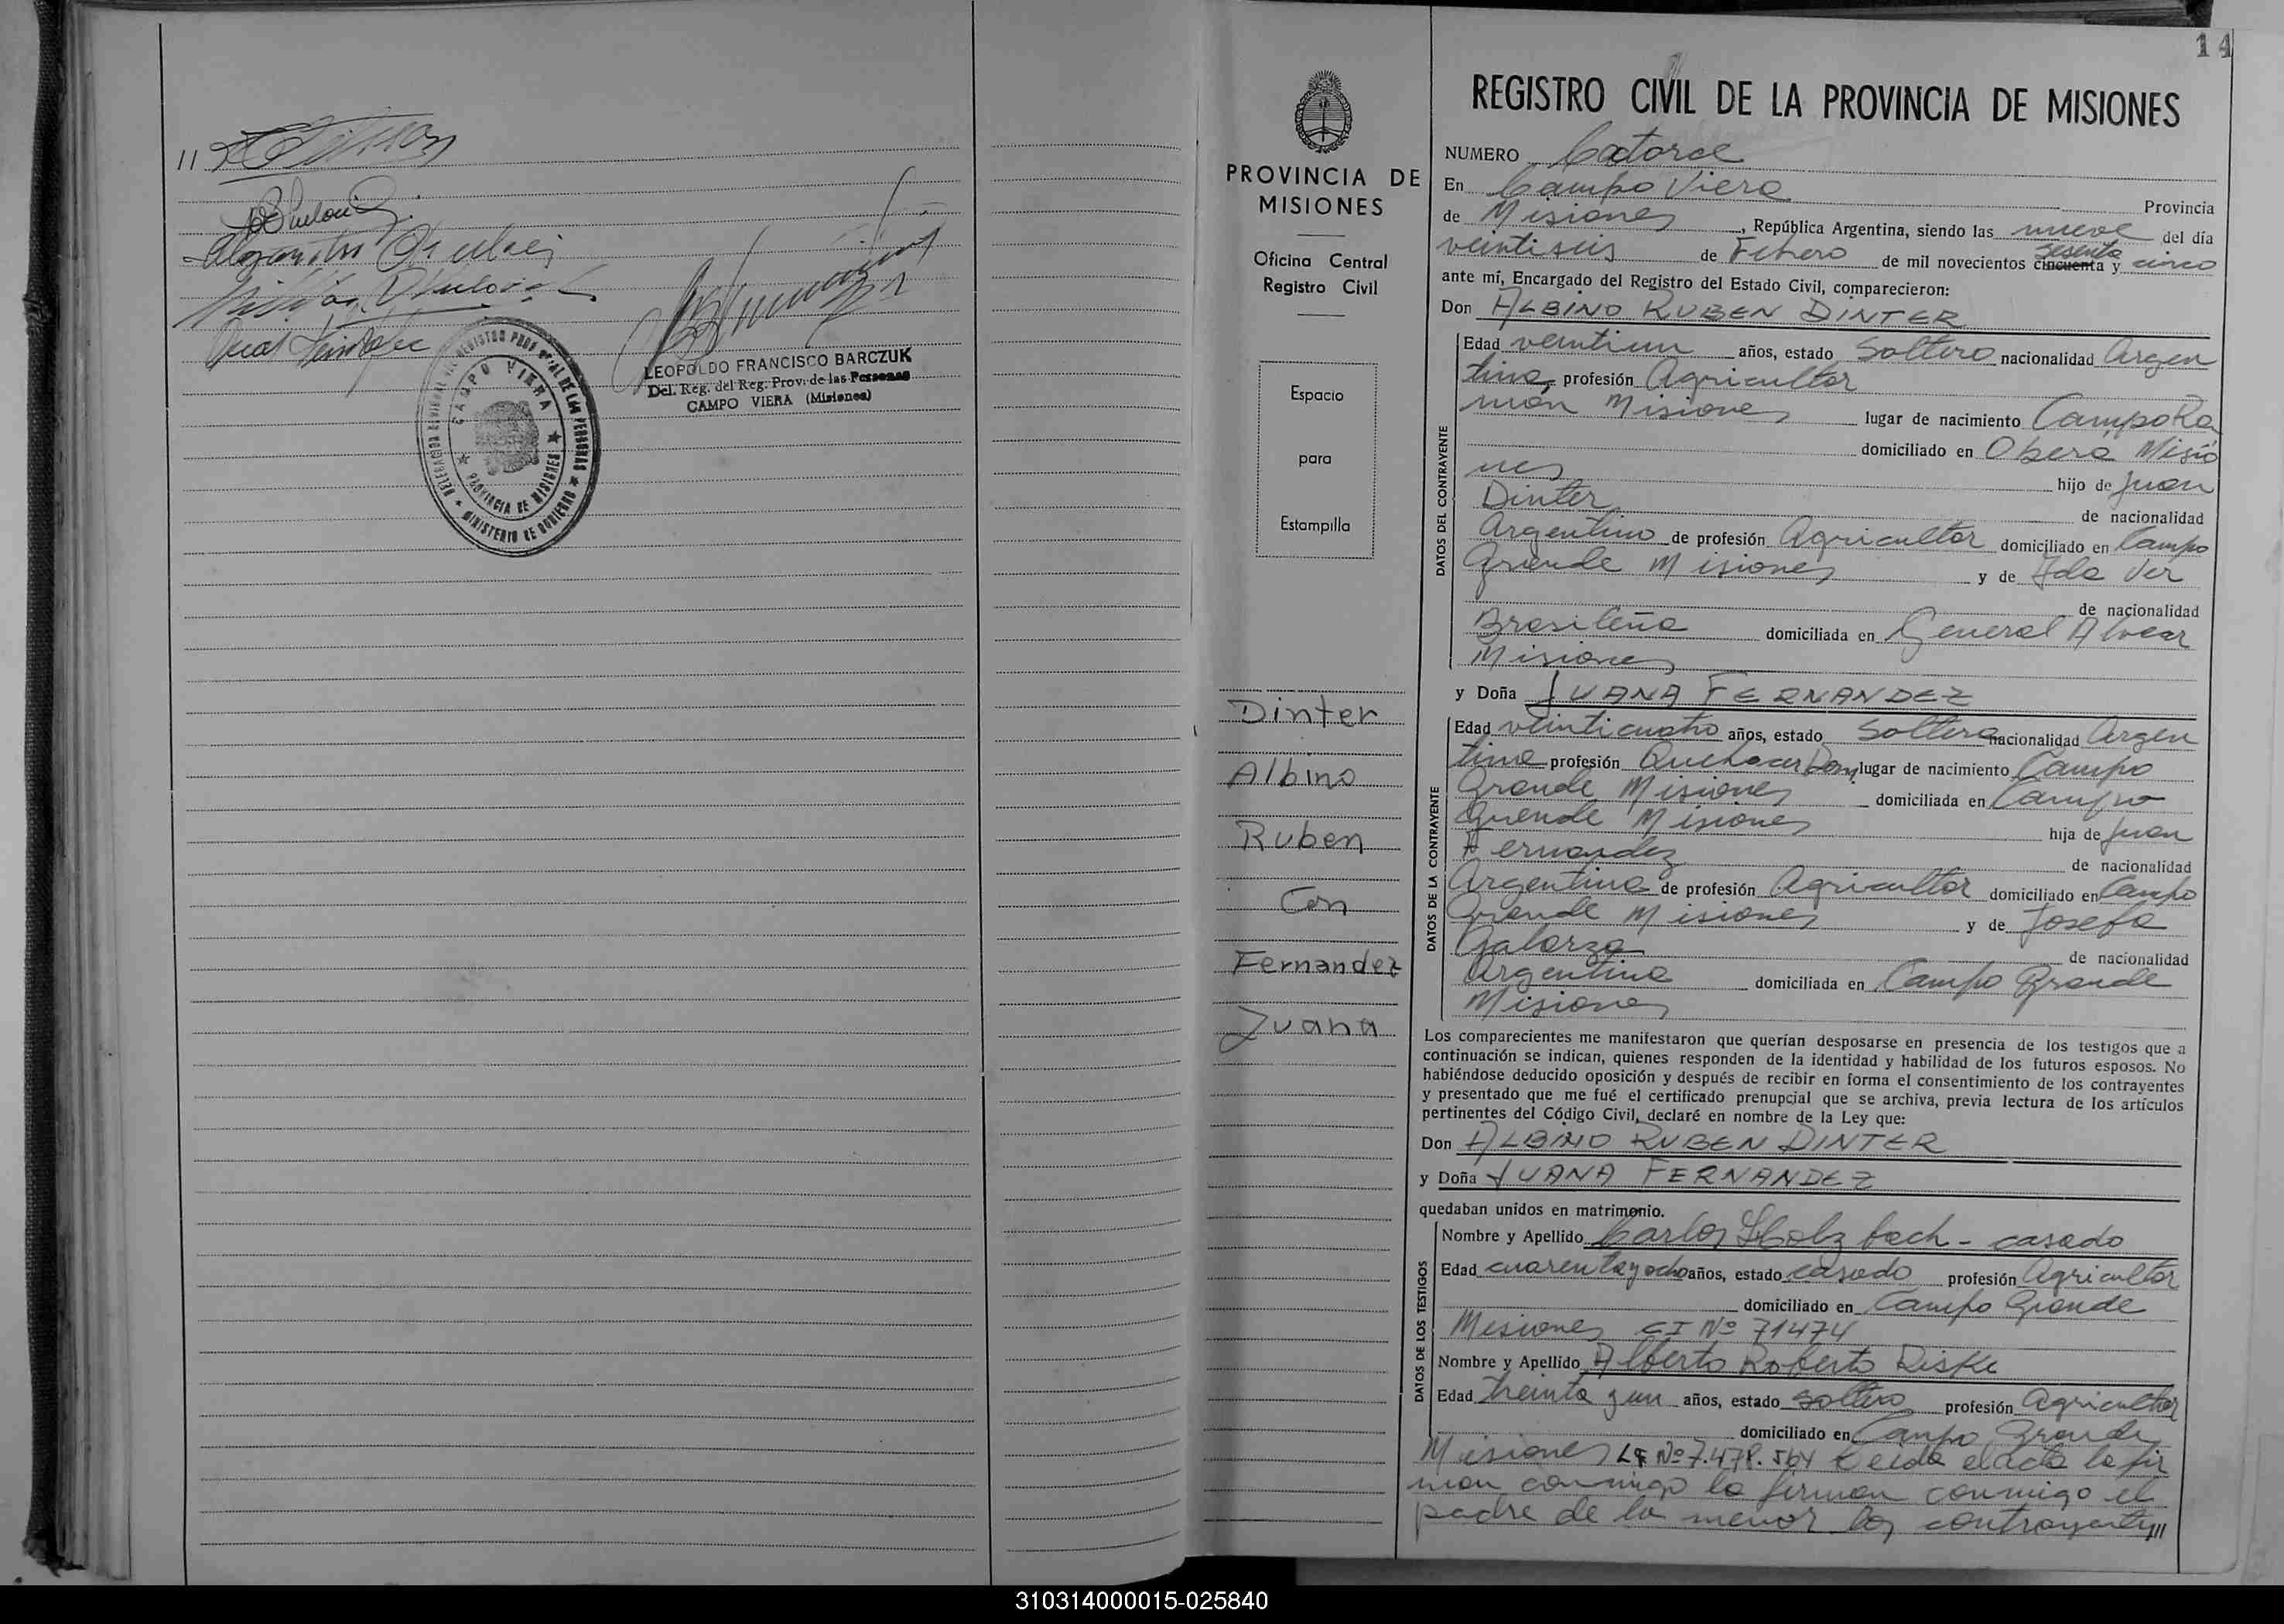 LEOPOLDO FRANCISCO BARCZUK
Del. Reg. del Reg. Prov. de las Personas
CAMPO VIERA (Misiones)
CAMPO VIERA
PROVINCIA DE MISIONES
MINISTERIO DE GOBIERNO
14
PROVINCIA DE
MISIONES
Oficina Central
Registro Civil
Espacio
para
Estampilla
Dinter
Albino
Ruben
Con
Fernandez
Juana
REGISTRO CIVIL DE LA PROVINCIA DE MISIONES
NUMERO Catorce
En Campo Viera Provincia
de Misiones, República Argentina, siendo las nueve del día
veintiseis de Febrero de mil novecientos cincuenta sesenta y cinco
ante mí, Encargado del Registro del Estado Civil, comparecieron:
Don ALBINO RUBEN DINTER
DATOS DEL CONTRAYENTE
Edad veintiun años, estado Soltero nacionalidad Argen
tina, profesión Agricultor
món Misiones lugar de nacimiento Campo Ra
domiciliado en Oberá Misio
nes hijo de Juan
Dinter de nacionalidad
Argentino de profesión Agricultor domiciliado en Campo
Grande Misiones y de Ida Ver
de nacionalidad
Brasileña domiciliada en General Alvear
Misiones
y Doña JUANA FERNANDEZ
DATOS DE LA CONTRAYENTE
Edad veinticuatro años, estado Soltera nacionalidad Argen
tina profesión Quehacer Dom. lugar de nacimiento Campo
Grande Misiones domiciliada en Campo
Grande Misiones hija de Juan
Fernandez de nacionalidad
Argentina de profesión Agricultor domiciliado en Campo
Grande Misiones y de Josefa
Galarza de nacionalidad
Argentina domiciliada en Campo Grande
Misiones
Los comparecientes me manifestaron que querían desposarse en presencia de los testigos que a
continuación se indican, quienes responden de la identidad y habilidad de los futuros esposos. No
habiéndose deducido oposición y después de recibir en forma el consentimiento de los contrayentes
y presentado que me fué el certificado prenupcial que se archiva, previa lectura de los artículos
pertinentes del Código Civil, declaré en nombre de la Ley que:
Don ALBINO RUBEN DINTER
y Doña JUANA FERNANDEZ
quedaban unidos en matrimonio.
DATOS DE LOS TESTIGOS
Nombre y Apellido Carlos Holz bach - casado
Edad cuarenta y ocho años, estado casado profesión Agricultor
domiciliado en Campo Grande
Misiones CI Nº 71474
Nombre y Apellido Alberto Roberto Diske
Edad treinta y un años, estado soltero profesión Agricultor
domiciliado en Campo Grande
Misiones LE Nº 7.478.564 Leida el acta la fir
man conmigo la firman conmigo el
padre de la menor los contrayentes///
310314000015-025840